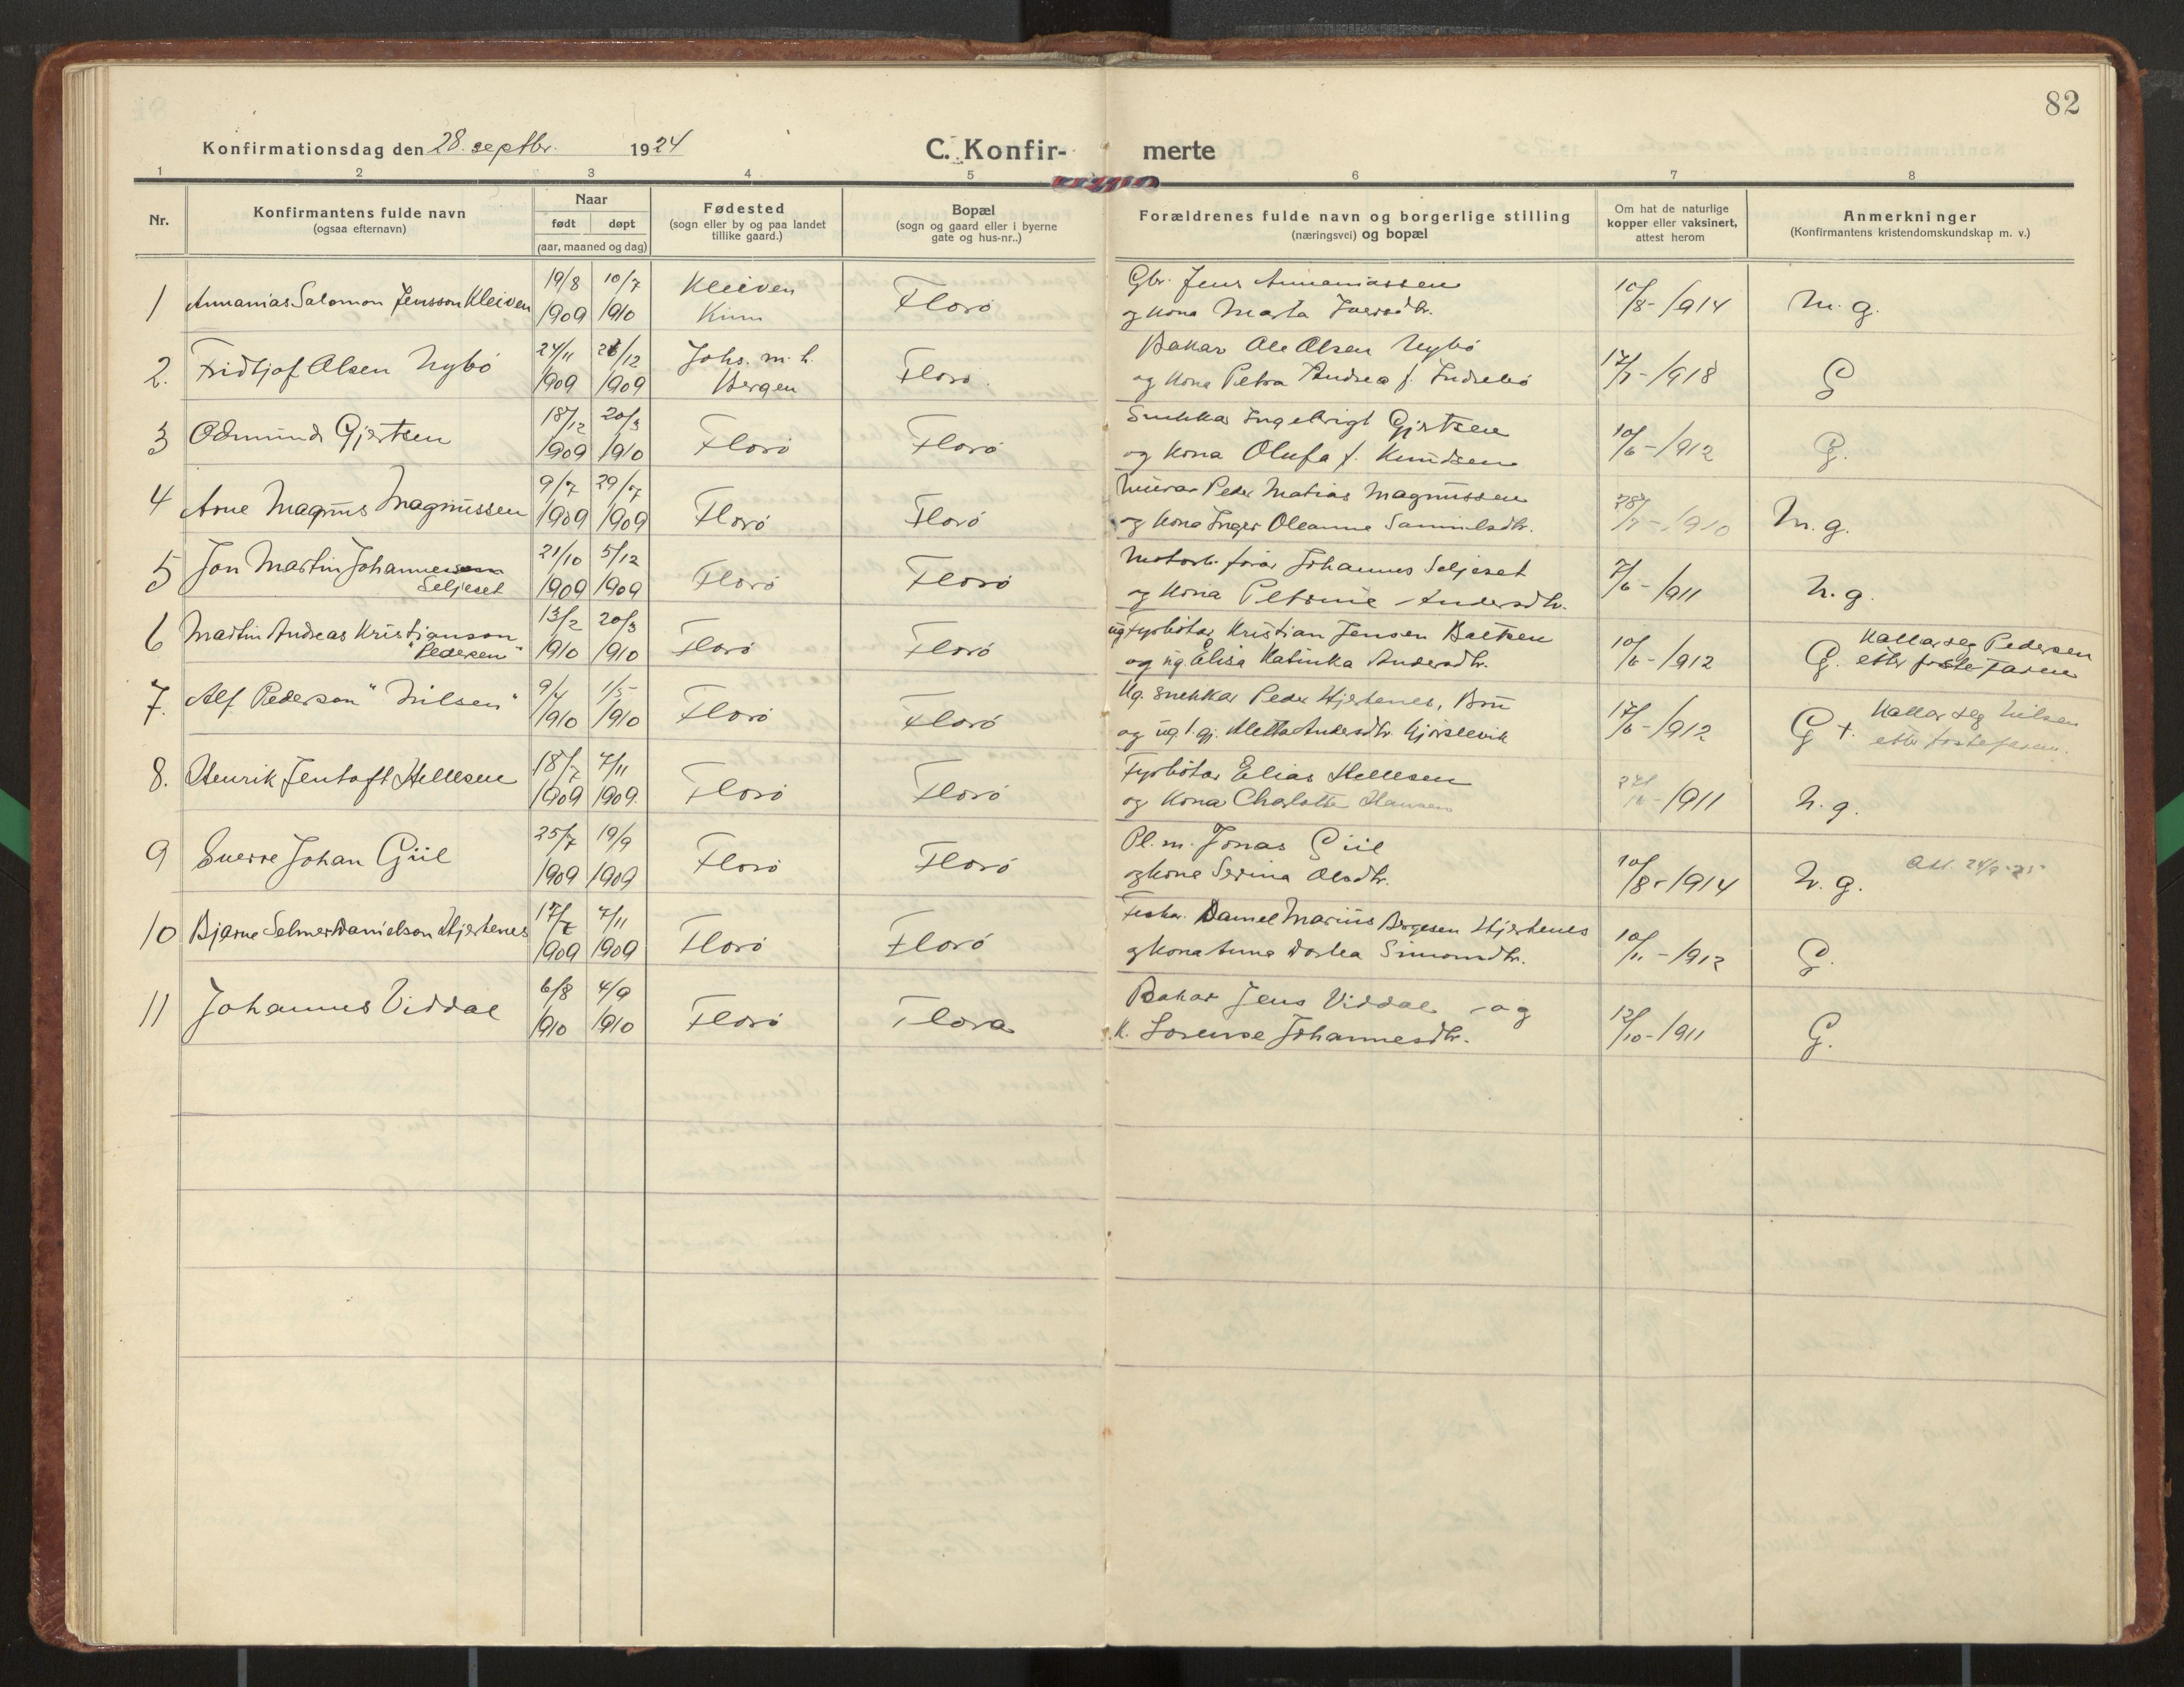 82
Konfirmationsdag den 28. septbr. 1924
C. Konfir- merte
1 2 3 4 5 6 7 8
Nr.
Konfirmantens fulde navn
(ogsaa efternavn)
Naar
født døpt
(aar, maaned og dag)
Fødested
(sogn eller by og paa landet
tillike gaard.)
Bopæl
(sogn og gaard eller i byerne
gate og hus-nr..)
Forældrenes fulde navn og borgerlige stilling
(næringsvei) og bopæl
Om hat de naturlige
kopper eller vaksinert,
attest herom
Anmerkninger
(Konfirmantens kristendomskundskap m. v.)
1 Annanias Salomon Jensson Kleiven 19/8 1909 10/7 1910 Kleiven Kinn Florø Gbr. Jens Annaniassen
og kona Marta Iversdtr. 10/8-1914 M.g.
2. Fridtjof Olsen Nybø 24/11 1909 26/12 1909 Johs. m. h. Bergen Florø. Bakar Ole Olsen Nybø
og kona Petra Andrea f. Indrebø 17/7-1918 G
3 Odmund Gjertsen 18/12 1909 20/3 1910 Florø Florø Snikkar Ingebrigt Gjertsen
og kona Olufa f. Knudsen 10/6-1912 G.
4 Arne Magnus Magnussen 9/7 1909 29/7 1909 Florø Florø Murar Peder Matias Magnussen
og kona Inger Oleanna Samuelsdtr. 28/7-1910 M.g.
5 Jon Martin Johannesson
Seljeset 21/10 1909 5/12 1909 Florø Florø Motorb. førar Johannes Seljeset
og kona Petrine Andersdtr. 7/6-1911 N.g.
6 Martin Andreas Kristianson
"Pedersen" 13/2 1910 20/3 1910 Florø Florø ug fyrbøtar Kristian Jensen Baltsen
og ug. Elisa Katinka Andersdtr. 10/6-1912 G. Kallar seg Pedersen
etter fosterfaren
7. Alf Pederson "Nilsen" 9/4 1910 1/5 1910 Florø Florø Ug. snekkar Peder Hjertenes, Bru
og ug. t.gj. Metta Andersdtr. Gjørslevik 17/6-1912 G+. Kallar seg Nilsen
etter fosterfaren.
8. Henrik Jentoft Hellesen 18/7 1909 7/11 1909. Florø Florø Fyrbøtar Elias Hellesen
og kona Charlotte Hansen 1911 N.g.
9 Sverre Johan Giil 25/7 1909 19/9 1909 Florø Florø Pl.m. Jonas Giil
og kona Serina Olsdtr. 10/8-1914 N.g. Att. 24/9-25
10 Bjarne Selmer Danielson Hjertenes 17/7 1909 7/11 1909 Florø Florø Fiskar. Daniel Marius Børgesen Hjertenes
og kona Anna Dortea Simonsdtr. 10/11-1912 G.
11 Johannes Viddal 6/8 1910 4/9 1910 Florø Flora Bakar Jens Viddal og
k. Lorense Johannesdtr. 12/10-1911 G.